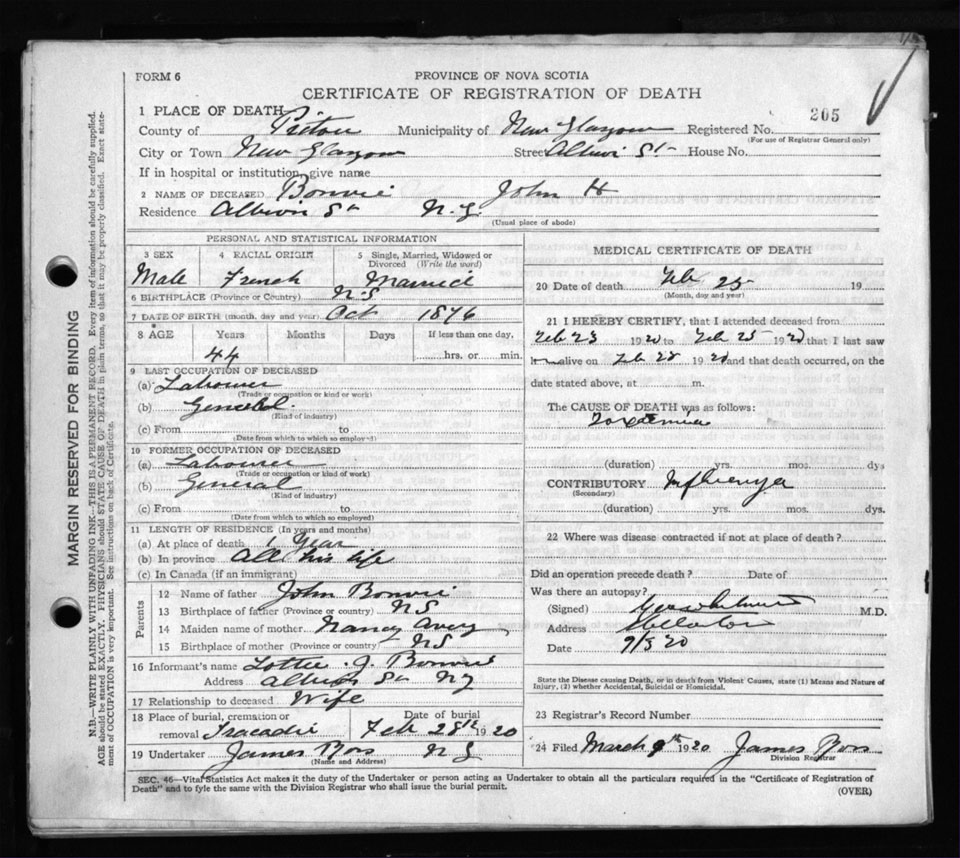 FORM 6
PROVINCE OF NOVA SCOTIA
CERTIFICATE OF REGISTRATION OF DEATH
1 PLACE OF DEATH
205
County of Pictou Municipality of New Glasgow Registered No.
(For use of Registrar General only)
City or Town New Glasgow Street Albion St House No.
If in hospital or institution, give name
2 NAME OF DECEASED Bonvie John H
Residence Albion St N.G.
(Usual place of abode)
PERSONAL AND STATISTICAL INFORMATION
3 SEX 4 RACIAL ORIGIN 5 Single, Married, Widowed or Divorced (Write the word)
Male French Married
6 BIRTHPLACE (Province or Country) N.S
7 DATE OF BIRTH (month, day and year) Oct 1876
8 AGE Years Months Days If less than one day,
44 hrs. or min.
9 LAST OCCUPATION OF DECEASED
(a) Labourer
(Trade or occupation or kind of work)
(b) General
(Kind of industry)
(c) From to
(Date from which to which so employed)
10 FORMER OCCUPATION OF DECEASED
(a) Labourer
(Trade or occupation or kind of work)
(b) General
(Kind of industry)
(c) From to
(Date from which to which so employed)
11 LENGTH OF RESIDENCE (In years and months)
(a) At place of death 1 Year
(b) In province All his life
(c) In Canada (if an immigrant)
Parents
12 Name of father John Bonvie
13 Birthplace of father (Province or country) NS
14 Maiden name of mother Nancy Avery
15 Birthplace of mother (Province or country) NS
16 Informant's name Lottie J. Bonvie
Address Albion St N G
17 Relationship to deceased Wife
18 Place of burial, cremation or removal Tracadie
Date of burial Feb 28th 1920
19 Undertaker James Ross N G
(Name and Address)
MEDICAL CERTIFICATE OF DEATH
20 Date of death Feb 25 19
(Month, day and year)
21 I HEREBY CERTIFY, that I attended deceased from
Feb 23 1920 to Feb 25 1920 that I last saw
h alive on Feb 25 1920 and that death occurred, on the
date stated above, at m.
The CAUSE OF DEATH was as follows:
Toxaemia
(duration) yrs. mos. dys
CONTRIBUTORY Influenza
(Secondary)
(duration) yrs. mos. dys.
22 Where was disease contracted if not at place of death?
Did an operation precede death? Date of
Was there an autopsy?
(Signed) M.D.
Address Stellarton
Date 9/3 20
State the Disease causing Death, or in death from Violent Causes, state (1) Means and Nature of Injury, (2) whether Accidental, Suicidal or Homicidal.
23 Registrar's Record Number
24 Filed March 9th 1920 James Ross
Division Registrar
SEC. 46—Vital Statistics Act makes it the duty of the Undertaker or person acting as Undertaker to obtain all the particulars required in the "Certificate of Registration of
Death" and to fyle the same with the Division Registrar who shall issue the burial permit.
(OVER)
MARGIN RESERVED FOR BINDING
N.B.—WRITE PLAINLY WITH UNFADING INK—THIS IS A PERMANENT RECORD. Every item of information should be carefully supplied.
AGE should be stated EXACTLY. PHYSICIANS should STATE CAUSE OF DEATH in plain terms, so that it may be properly classified. Exact state-
ment of OCCUPATION is very important. See instructions on back of Certificate.